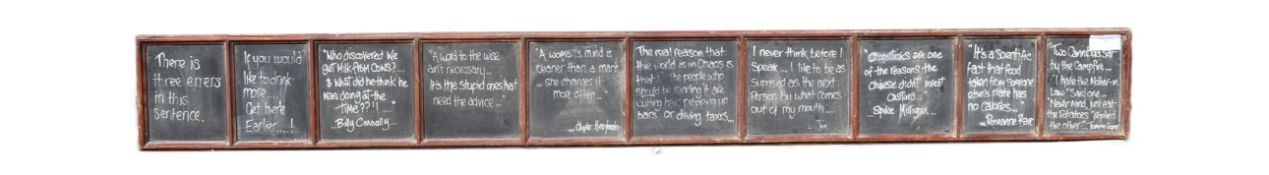 There is
three errers
in this
sentence.
If you would
like to drink
more....
Get here
Earlier.....!
"Who discovered we
get Milk from Cows?...
& what did he think he
was doing at the
Time??!!"
- Billy Connolly -
"A word to the wise
ain't necessary...
It's the stupid ones that
need the advice..."
"A woman's mind is
cleaner than a man's
... she changes it
more often..."
The real reason that
the world is in Chaos is
that the people who
should be running it are
cutting hair, propping up
bars or driving taxis...
I never think before I
Speak... I like to be as
surprised as the next
Person by what comes
out of my mouth....
"Chopsticks are one
of the reasons the
chinese didn't invent
custard...
Spike Milligan...
"It's a Scientific
fact that food
taken from someone
else's plate has
no calories..."
- Roseanne Barr
Two Cannibals sat
by the Campfire...
"I hate the Mother-in-
Law" Said one...
"Never Mind, just eat
the Potatoes" replied
the other." Tommy Cooper